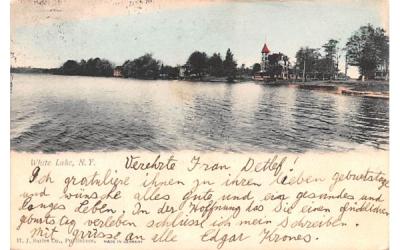 White Lake, N.Y.
Verehrte Frau Detlef!
Ich gratuliere ihnen zu ihren lieben geburtstage
und wünsche alles gute und ein gesundes und
langes Leben. In der Hoffnung das Sie einen glücklichen
geburtstag verleben schliesse ich mein Schreiben.
Mit grüsse an alle Edgar Krones
Publishers, MADE IN GERMANY